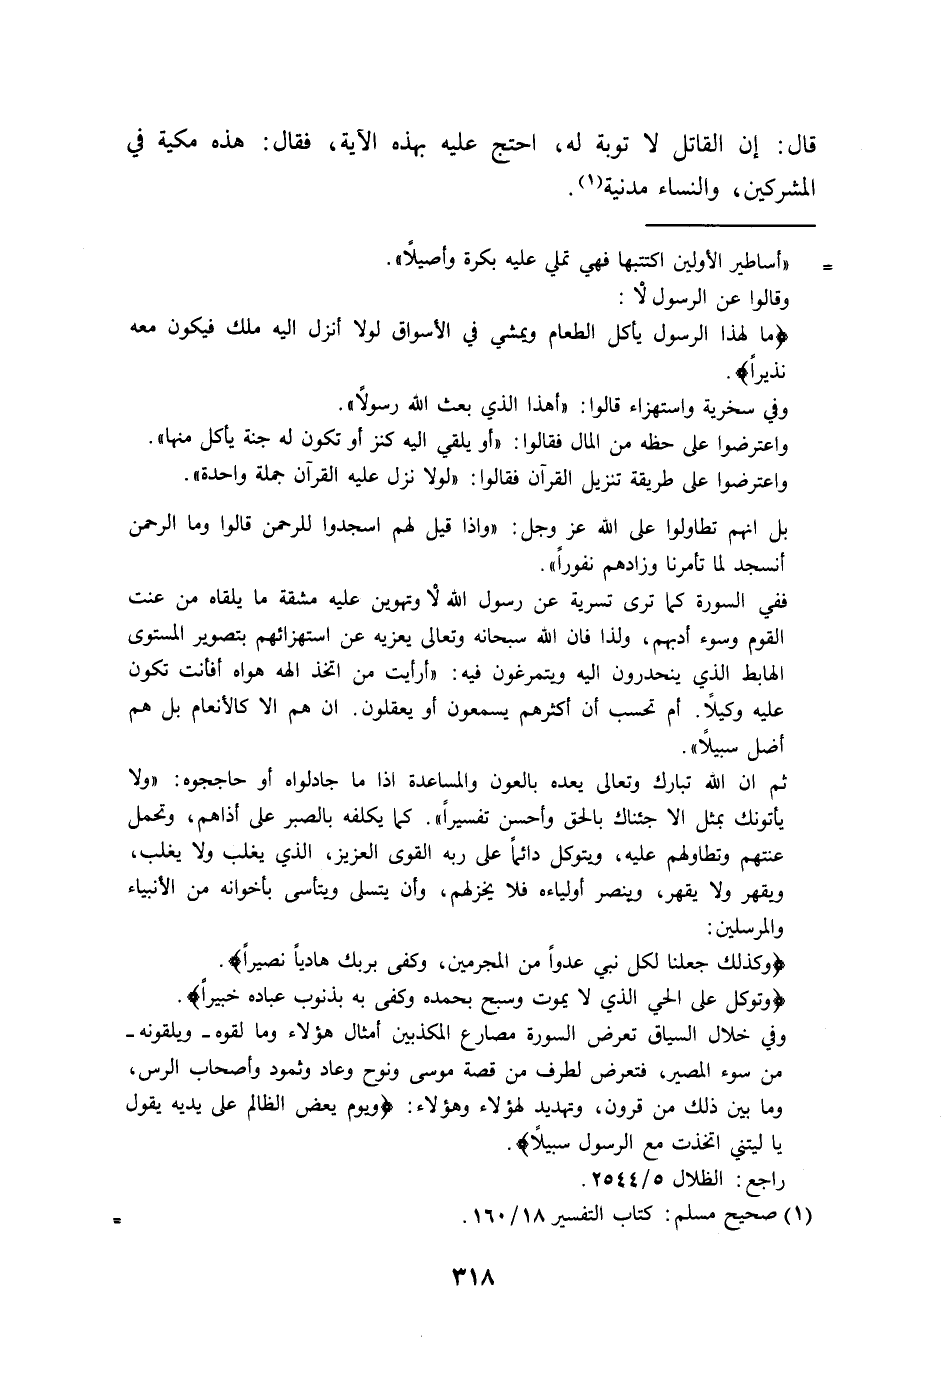 قال: إن القاتل لا توبة له، احتج عليه بهذه الآية، فقال: هذه مكية في
المشركين، والنساء مدنية(١).
= «أساطير الأولين اكتتبها فهي تملي عليه بكرة وأصيلاً».
وقالوا عن الرسول :
﴿ما لهذا الرسول يأكل الطعام ويمشي في الأسواق لولا أنزل اليه ملك فيكون معه
نذيراً﴾.
وفي سخرية واستهزاء قالوا: «أهذا الذي بعث الله رسولاً».
واعترضوا على حظه من المال فقالوا: «أو يلقي اليه كنز أو تكون له جنة يأكل منها».
واعترضوا على طريقة تنزيل القرآن فقالوا: «لولا نزل عليه القرآن جملة واحدة».
بل انهم تطاولوا على الله عز وجل: «واذا قيل لهم اسجدوا للرحمن قالوا وما الرحمن
أنسجد لما تأمرنا وزادهم نفوراً».
ففي السورة كما ترى تسرية عن رسول الله وتهوين عليه مشقة ما يلقاه من عنت
القوم وسوء أدبهم، ولذا فان الله سبحانه وتعالى يعزيه عن استهزائهم بتصوير المستوى
الهابط الذي ينحدرون اليه ويتمرغون فيه: «أرأيت من اتخذ الهه هواه أفأنت تكون
عليه وكيلاً. أم تحسب أن أكثرهم يسمعون أو يعقلون. ان هم الا كالأنعام بل هم
أضل سبيلاً».
ثم ان الله تبارك وتعالى يعده بالعون والمساعدة اذا ما جادلواه أو حاججوه: «ولا
يأتونك بمثل الا جئناك بالحق وأحسن تفسيراً». كما يكلفه بالصبر على أذاهم، وتحمل
عنتهم وتطاولهم عليه، ويتوكل دائماً على ربه القوى العزيز، الذي يغلب ولا يغلب،
ويقهر ولا يقهر، وينصر أولياءه فلا يخزلهم، وأن يتسلى ويتأسى بأخوانه من الأنبياء
والمرسلين:
﴿وكذلك جعلنا لكل نبي عدواً من المجرمين، وكفى بربك هادياً نصيراً﴾.
﴿وتوكل على الحي الذي لا يموت وسبح بحمده وكفى به بذنوب عباده خبيراً﴾.
وفي خلال السياق تعرض السورة مصارع المكذبين أمثال هؤلاء وما لقوه ـ ويلقونه ـ
من سوء المصير، فتعرض لطرف من قصة موسى ونوح وعاد وثمود وأصحاب الرس،
وما بين ذلك من قرون، وتهديد لهؤلاء وهؤلاء: ﴿ويوم يعض الظالم على يديه يقول
يا ليتني اتخذت مع الرسول سبيلاً﴾.
راجع: الظلال ٢٥٤٤/٥.
(١) صحيح مسلم: كتاب التفسير ١٦٠/١٨. =
٣١٨